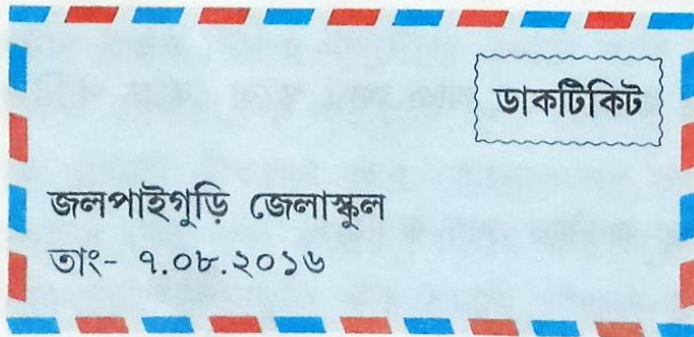 ডাকটিকিট
জলপাইগুড়ি জেলাস্কুল
তাং- ৭.০৮.২০১৬